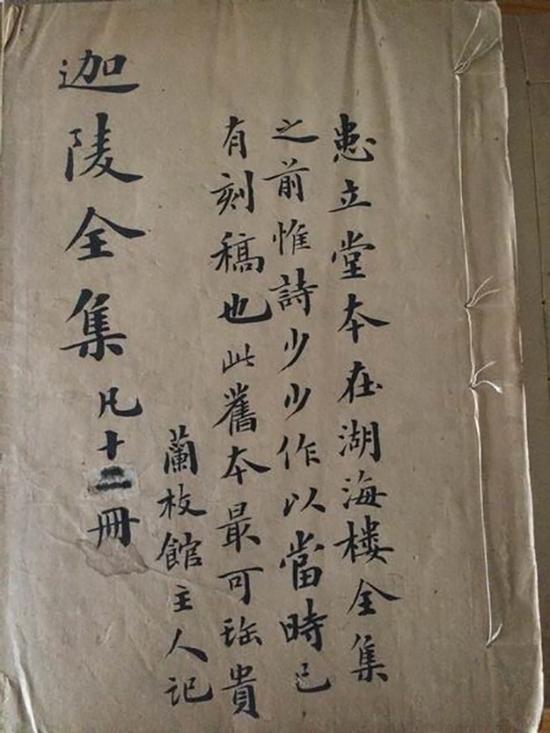 患立堂本在湖海楼全集
之前惟詩少少作以當時已
有刻稿也此舊本最可珎貴
蘭枝館主人记
迦陵全集凡十二冊